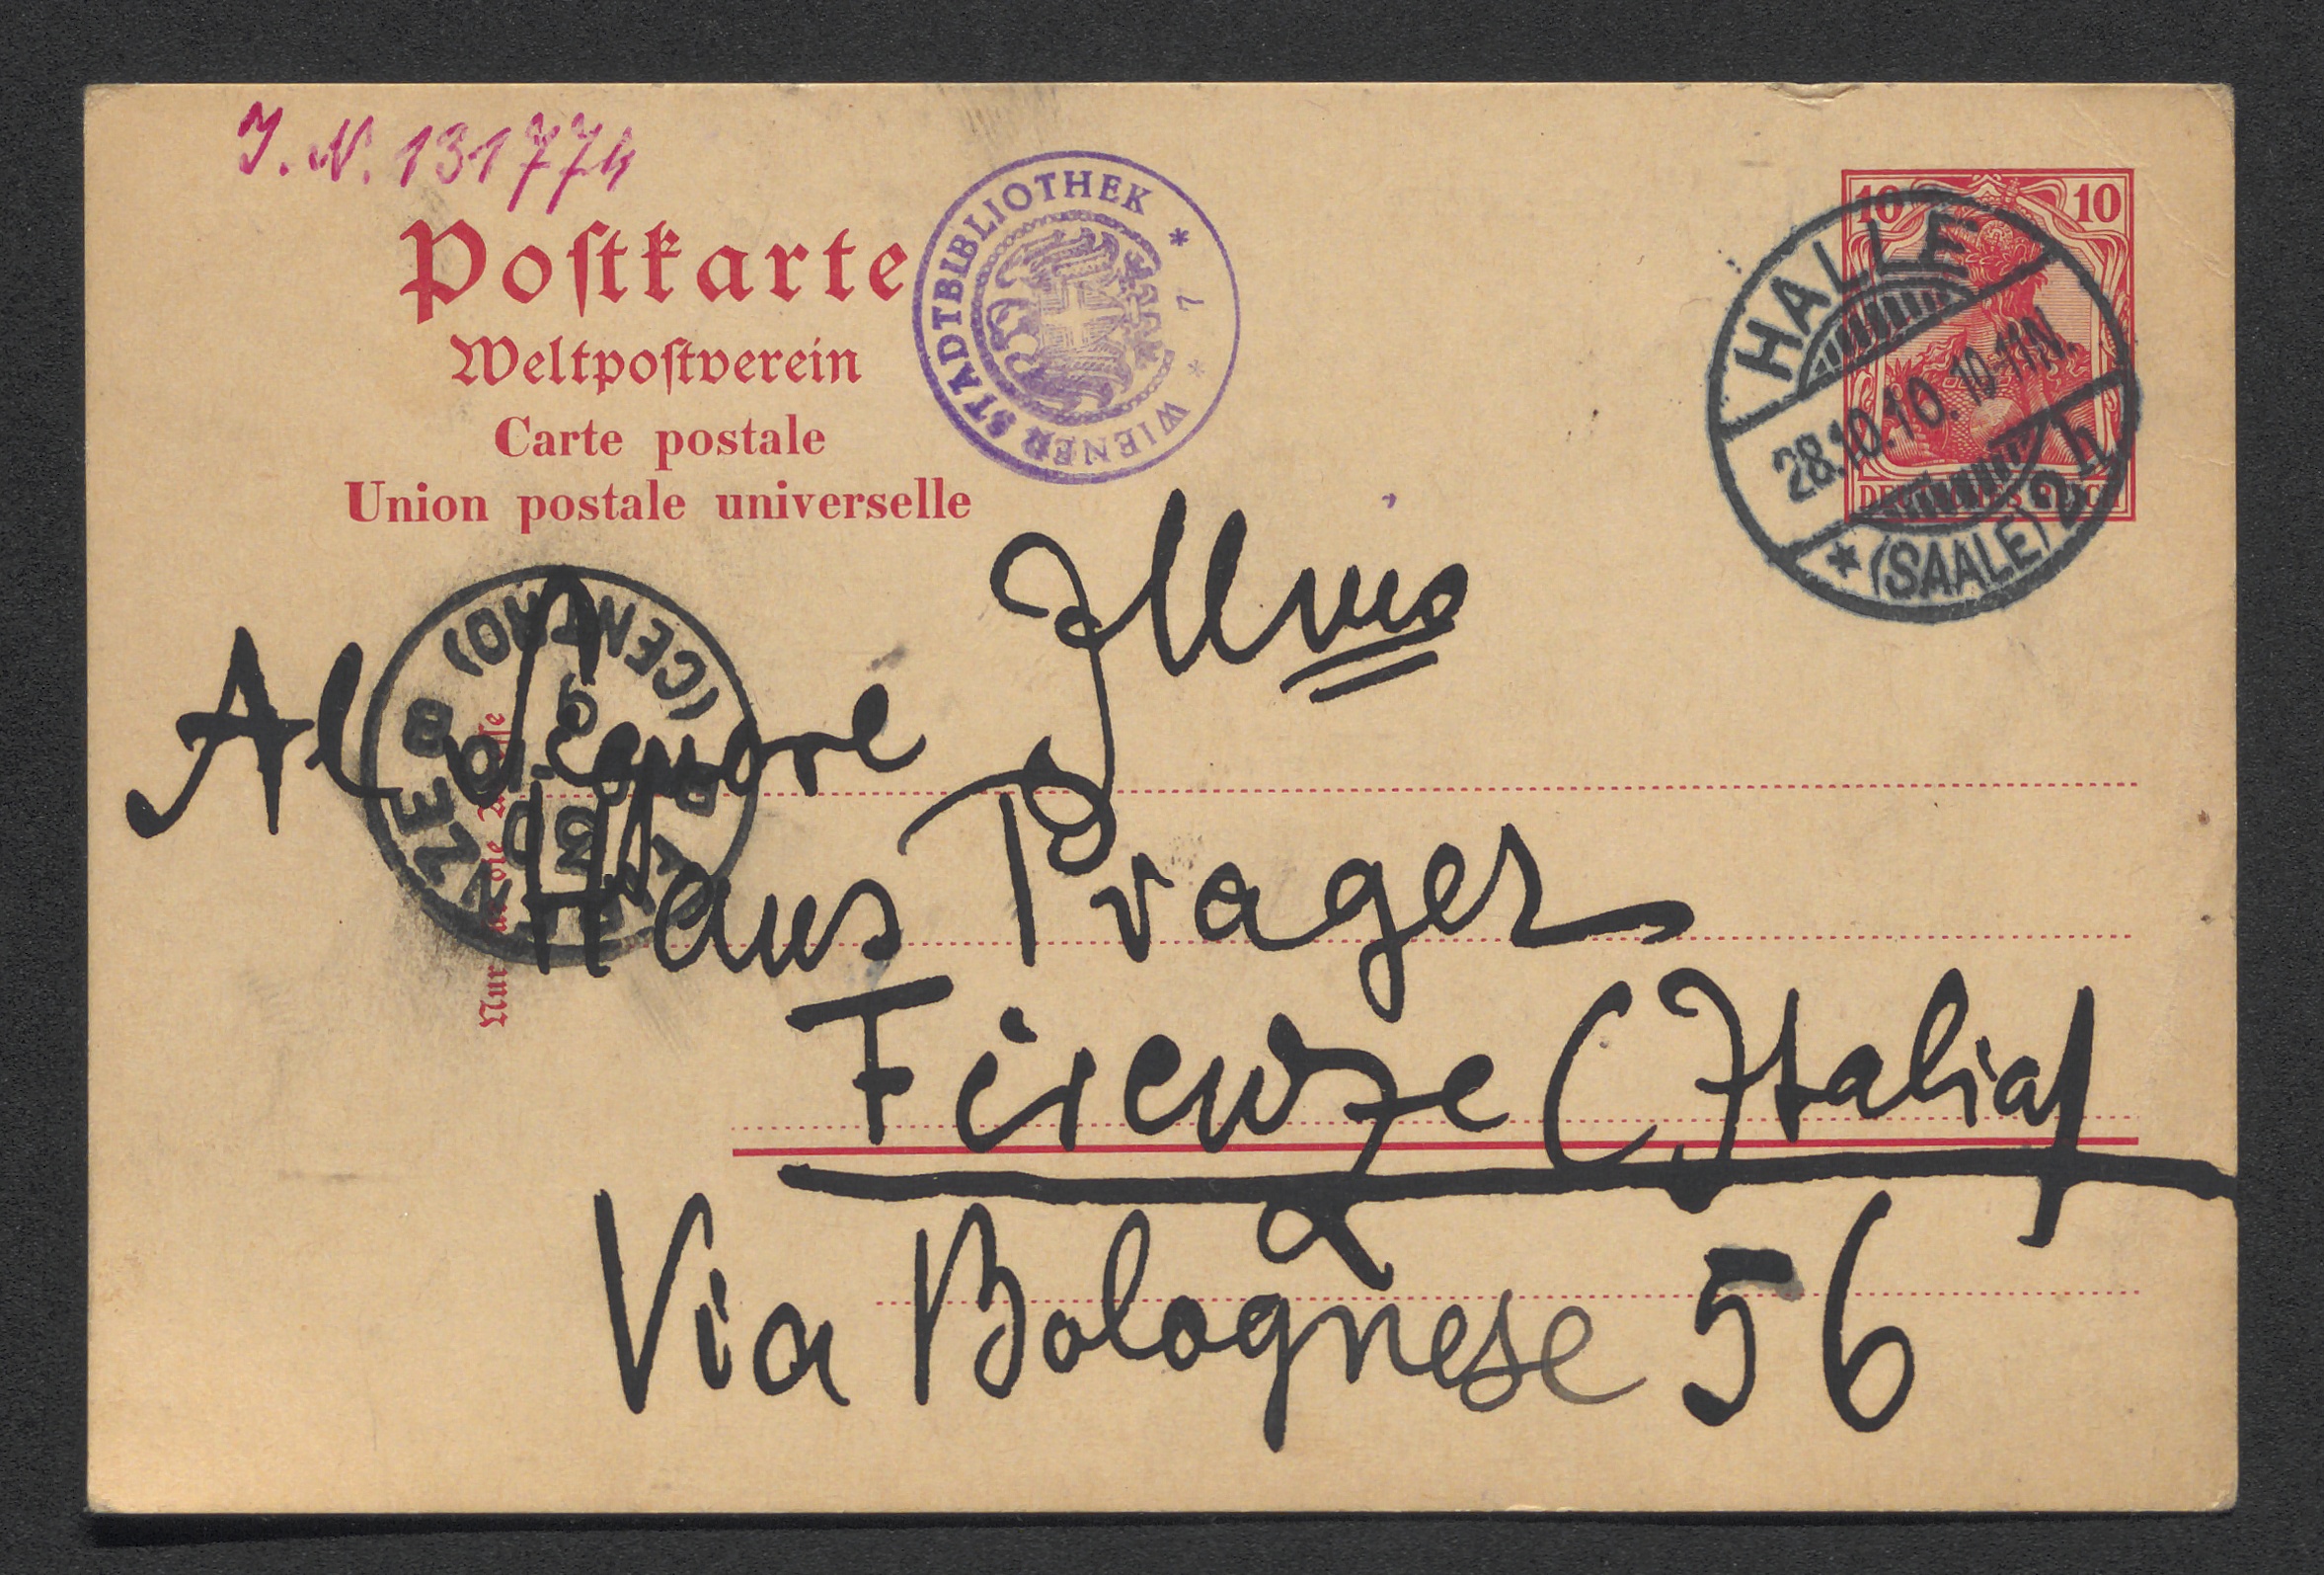 J. N. 131774
Poſtkarte
Weltpoſtverein
Carte postale
Union postale universelle
WIENER STADTBIBLIOTHEK * 7 *
10 10
DEUTSCHES REICH
HALLE
28.10.10. 10-11N.
* (SAALE) 2 h
(CENTRO)
FIRENZE
Nur für die
Illmo
Al Signore
Hans Prager
Firenze (Italia)
Via Bolognese 56